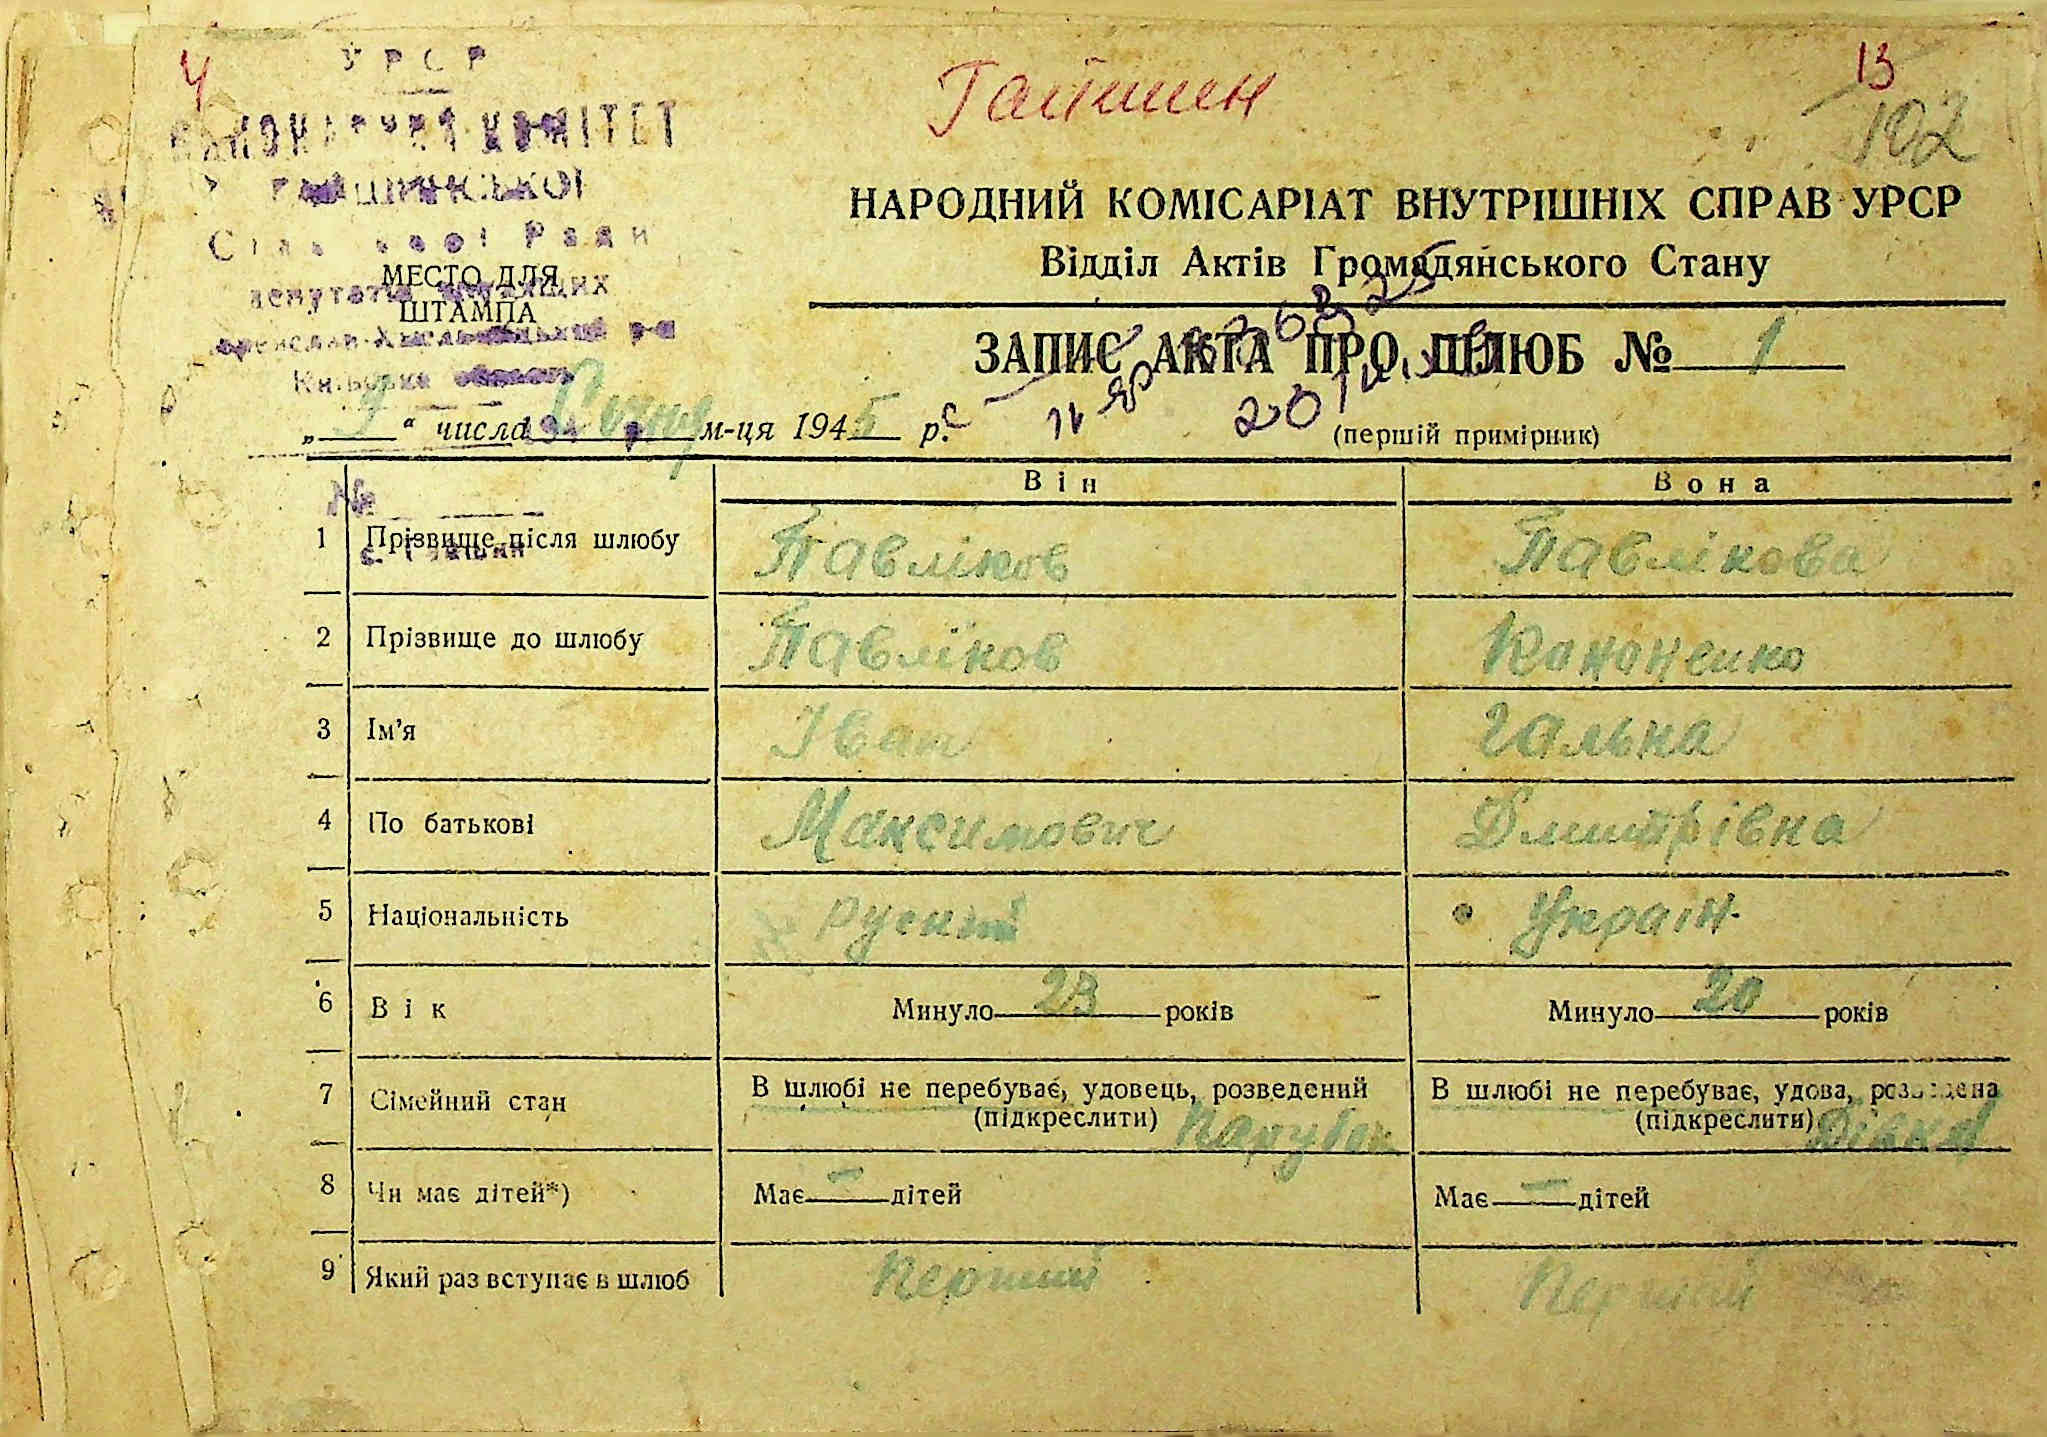 У
13
Гайшин
102
УРСР
ВИКОНАВЧИЙ КОМІТЕТ
ГАЙШИНСЬКОЇ
Сільської Ради
депутатів трудящих
Переяслав-Хмельницький р-н
Київська область
МЕСТО ДЛЯ
ШТАМПА
НАРОДНИЙ КОМІСАРІАТ ВНУТРІШНІХ СПРАВ УРСР
Відділ Актів Громадянського Стану
ЗАПИС АКТА ПРО ШЛЮБ № 1
„ 9 “ числа Січня м-ця 1945 р.
(першій примірник)
№
с. Гайшин
Він Вона
1 Прізвище після шлюбу Павліков Павлікова
2 Прізвище до шлюбу Павліков Кононенко
3 Ім’я Іван Гальна
4 По батькові Максимович Дмитрівна
5 Національність руський Україн.
6 Вік Минуло 23 років Минуло 20 років
7 Сімейний стан В шлюбі не перебуває, удовець, розведений В шлюбі не перебуває, удова, розведена
(підкреслити) Парубок (підкреслити) Дівка
8 Чи має дітей*) Має — дітей Має — дітей
9 Який раз вступає в шлюб Перший Перший